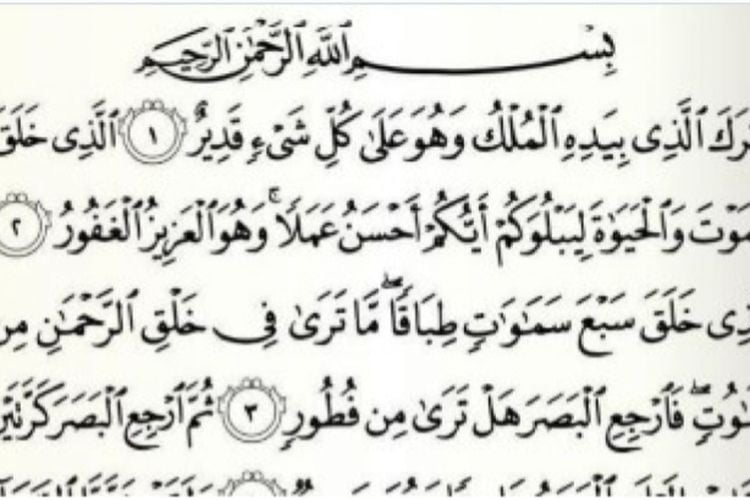 بِسْمِ ٱللَّهِ ٱلرَّحْمَٰنِ ٱلرَّحِيمِ
ٱلَّذِى بِيَدِهِ ٱلْمُلْكُ وَهُوَ عَلَىٰ كُلِّ شَىْءٍ قَدِيرٌ ١ ٱلَّذِى خَلَقَ
وَٱلْحَيَوٰةَ لِيَبْلُوَكُمْ أَيُّكُمْ أَحْسَنُ عَمَلًا ۚ وَهُوَ ٱلْعَزِيزُ ٱلْغَفُورُ ٢
خَلَقَ سَبْعَ سَمَٰوَٰتٍ طِبَاقًا ۖ مَّا تَرَىٰ فِى خَلْقِ ٱلرَّحْمَٰنِ مِن
فَٱرْجِعِ ٱلْبَصَرَ هَلْ تَرَىٰ مِن فُطُورٍ ٣ ثُمَّ ٱرْجِعِ ٱلْبَصَرَ كَرَّتَيْنِ